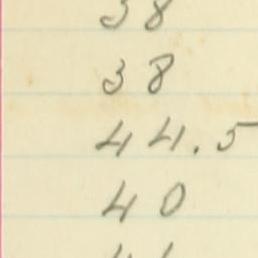 38
38
44.5
40